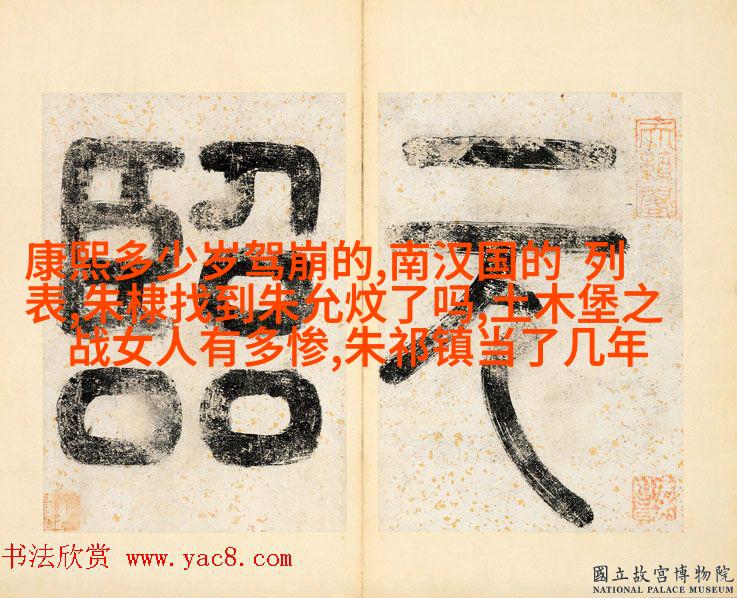 元
康熙多少岁驾崩的,南汉国的 列
表,朱棣找到朱允炆了吗,土木堡之
战女人有多惨,朱祁镇当了几年
书法欣赏 www.yac8.com
國立故宮博物院
NATIONAL PALACE MUSEUM